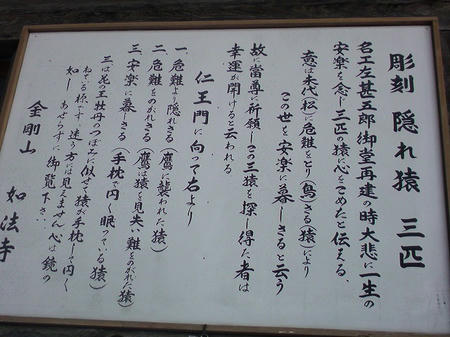 彫刻 隠れ猿 三匹
名工左甚五郎御堂再建の時大悲に一生の
安楽を念じ三匹の猿に心をこめたと伝える、
意は末代(松)に危難をとり(鳥)さる(猿)により
この世を安楽に暮しさると云う
故に當尊に祈願しこの三猿を探し得た者は
幸運が開けると云われる
仁王門に向って右より
一、危難より隠れさる(鷹に襲われた猿)
二、危難をのがれさる(鷹は猿を見失い難をのがれた猿)
三、安楽に暮さる(手枕で円く眠っている猿)
三は花の王牡丹のつぼみに似せて猿が手枕して円く
ねている様です 迷う方は見えません心は鏡の
如し あせらずに御覧下さい、
金剛山 如法寺